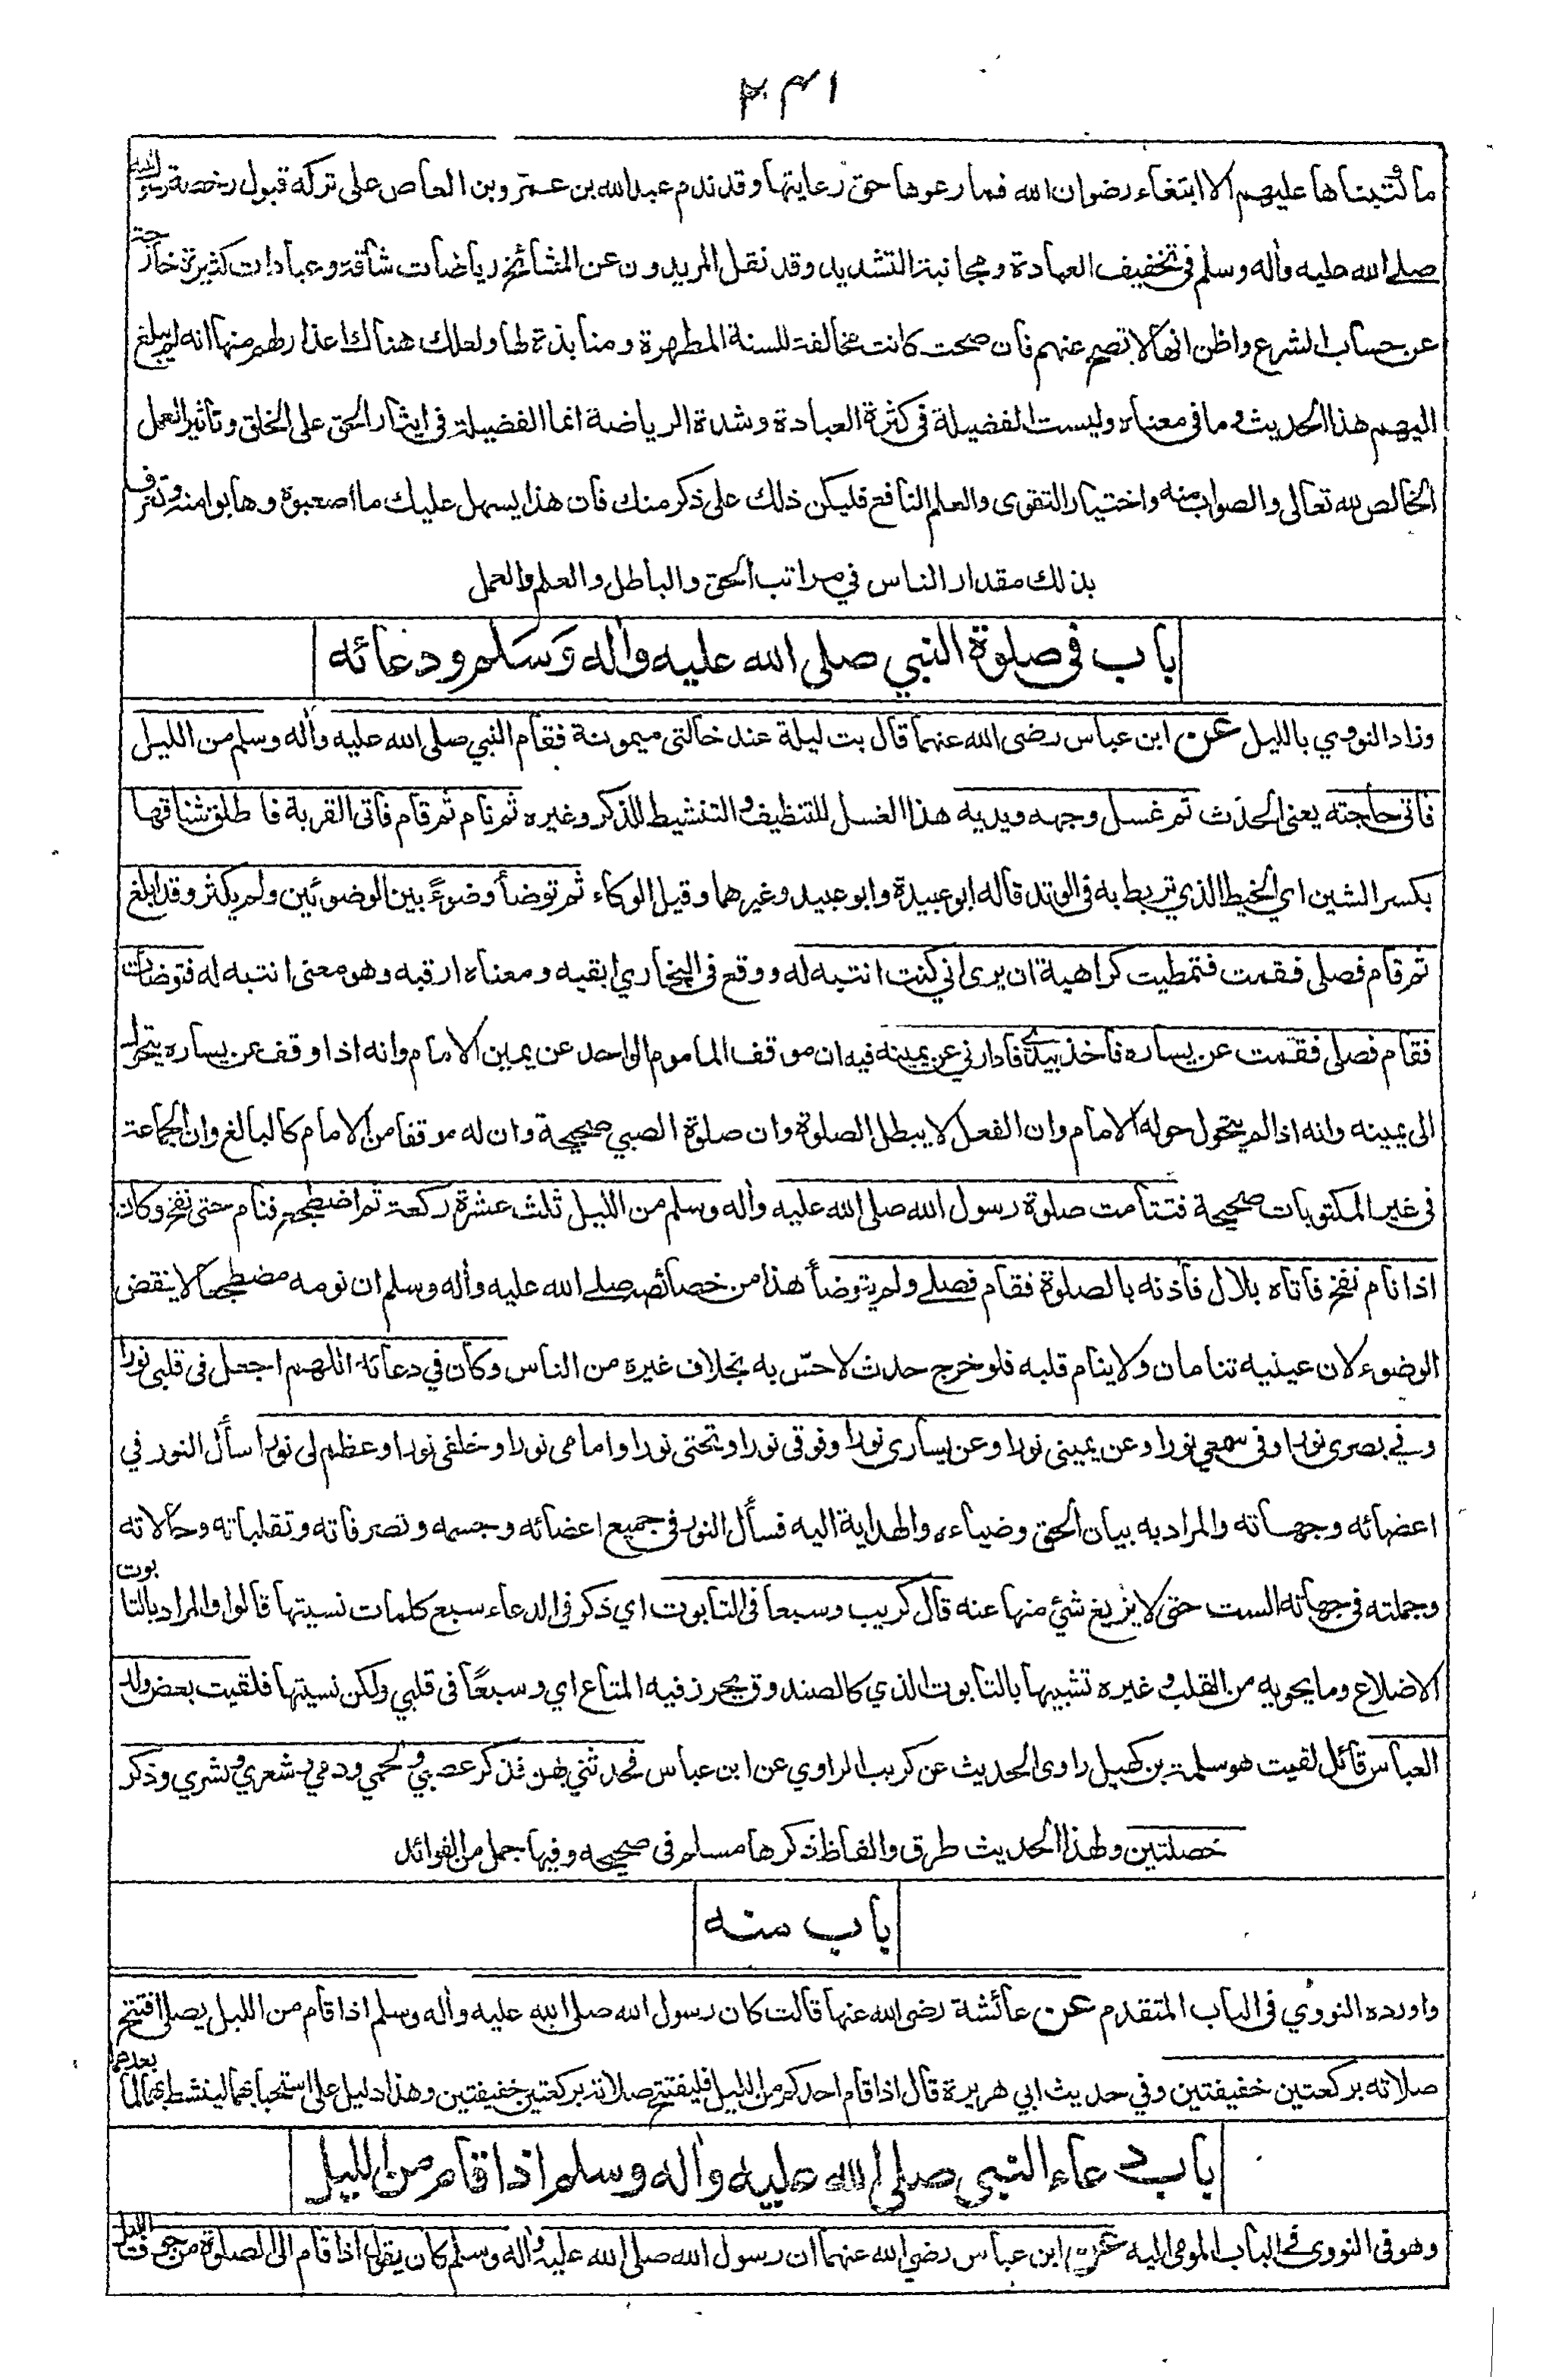 ٢٣١
ما كتبناها عليهم الا ابتغاء رضوان الله فما رعوها حق رعايتها وقد ندم عبدالله بن عمرو بن العاص على تركه قبول رخصة رسول الله
صلى الله عليه وأله وسلم في تخفيف العبادة ومجانبة التشديد وقد نقل المريدون عن المشائخ رياضات شاقة وعبادات كثيرة خارجة
عن حساب الشرع واظن انها لا تصح عنهم فان صحت كانت مخالفة للسنة المطهرة ومنابذة لها ولعلك هناك اعذار لهم منها انه لم يبلغ
اليهم هذا الحديث وما في معناه وليست الفضيلة في كثرة العبادة وشدة الرياضة انما الفضيلة في ايثار الحق على الخلق وتأثير العمل
الخالص لله تعالى والصواب منه واختيار التقوى والعلم النافع فليكن ذلك على ذكر منك فان هذا يسهل عليك ما اصعبوة وهابوا منه وتعرف
بذلك مقدار الناس في مراتب الحق والباطل والعلم والعمل
باب في صلوة النبي صلى الله عليه واٰله وَسَلم ودعائه
وزاد النووي بالليل عن ابن عباس رضى الله عنهما قال بت ليلة عند خالتى ميمونة فقام النبي صلى الله عليه وأله وسلم من الليل
فاتى حاجته يعنى الحدث ثم غسل وجهه ويديه هذا الغسل للتنظيف والتنشيط للذكر وغيره ثم نام ثم قام فاتى القربة فاطلق شناقها
بكسر الشين اي الخيط الذي تربط به في الوتد قاله ابو عبيدة وابو عبيد وغيرهما وقيل الوكاء ثم توضأ وضوءً بين الوضوئين ولم يكثر وقد ابلغ
ثم قام فصلى فقمت فتمطيت كراهية ان يرى اني كنت انتبه له ووقع في البخاري ابقيه ومعناه ارقبه وهو معنى انتبه له فتوضأت
فقام فصلى فقمت عن يساره فاخذ بيدي فادارني عن يمينه فيه ان موقف الماموم الواحد عن يمين الامام وانه اذا وقف عن يساره يتحول
الى يمينه وانه اذا لم يتحول حوله الامام وان الفعل لا يبطل الصلوة وان صلوة الصبي صحيحة وان له موقفا من الامام كالبالغ وان الجماعة
في غير المكتوبات صحيحة فتتامت صلوة رسول الله صلى الله عليه وأله وسلم من الليل ثلث عشرة ركعة ثم اضطجع فنام حتى نفخ وكان
اذا نام نفخ فاتاه بلال فأذنه بالصلوة فقام فصلى ولم يتوضأ هذا من خصائصه صلى الله عليه وأله وسلم ان نومه مضطجعا لا ينقض
الوضوء لان عينيه تنامان ولا ينام قلبه فلو خرج حدث لاحسّ به بخلاف غيره من الناس وكان في دعائه اللهم اجعل في قلبى نورا
وفي بصرى نورا وفي سمعي نورا وعن يمينى نورا وعن يسارى نورا وفوقى نورا وتحتى نورا وامامى نورا وخلفى نورا وعظم لى نورا سأل النور في
اعضائه وجهاته والمراد به بيان الحق وضياءه والهداية اليه فسأل النور في جميع اعضائه وجسمه وتصرفاته وتقلباته وحالاته
وجملته في جهاته الست حتى لا يزيغ شئ منها عنه قال كريب وسبعا في التابوت اي ذكر في الدعاء سبع كلمات نسيتها قالوا والمراد بالتابوت
الاضلاع وما يحويه من القلب وغيره تشبيها بالتابوت الذي كالصندوق يحرز فيه المتاع اي وسبعًا في قلبي ولكن نسيتها فلقيت بعض ولد
العباس قائل لقيت هو سلمة بن كهيل راوى الحديث عن كريب الراوي عن ابن عباس فحدثني بهن فذكر عصبي ولحمي ودمي وشعري وبشري وذكر
خصلتين ولهذا الحديث طرق والفاظ ذكرها مسلم في صحيحه وفيها جمل من الفوائد
باب منه
واورده النووي في الباب المتقدم عن عائشة رضى الله عنها قالت كان رسول الله صلى الله عليه وأله وسلم اذا قام من الليل يصلى افتتح
صلاته بركعتين خفيفتين وفي حديث ابي هريرة قال اذا قام احدكم من الليل فليفتتح صلاته بركعتين خفيفتين وهذا دليل على استحبابهما لينشط بهما لما بعدهما
باب دعاء النبى صلى الله عليه واٰله وسلم اذا قام من الليل
وهو في النووى في الباب المومى اليه عن ابن عباس رضي الله عنهما ان رسول الله صلى الله عليه وأله وسلم كان يقول اذا قام الى الصلوة من جوف الليل